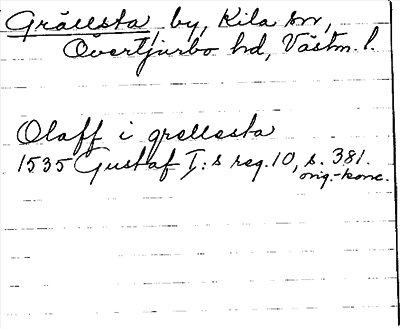 Grällsta, by, Kila sn,
Övertjurbo hd, Västm. l.
Olaff i grellesta
1535 Gustaf I:s reg. 10, s. 381.
orig.-konc.